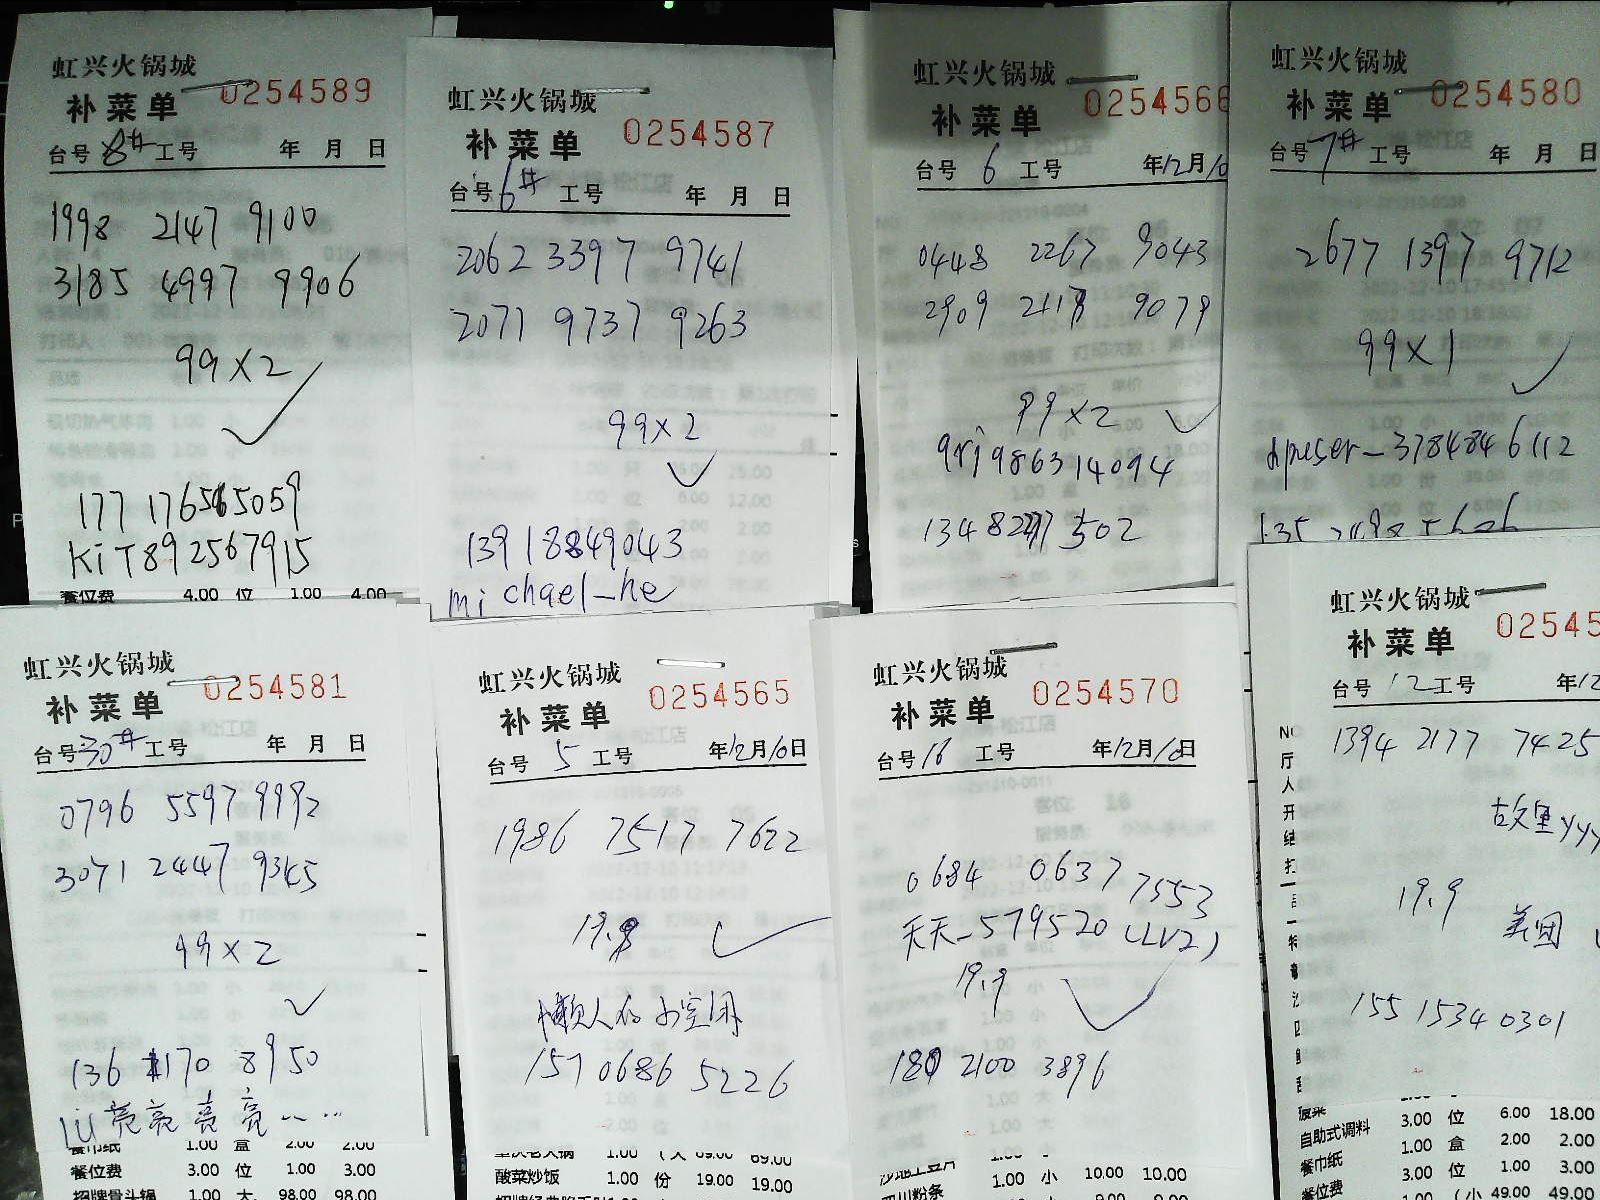 虹兴火锅城
补菜单 0254589
台号 8# 工号 年 月 日
1998 2147 9100
3185 4997 9906
99×2
177 1765065059
KiT892567915
餐位费 4.00 位 1.00 4.00
虹兴火锅城
补菜单 0254587
台号 6# 工号 年 月 日
2062 3397 9741
2071 9737 9263
99×2
13918849043
michael_he
虹兴火锅城
补菜单 0254566
台号 6 工号 年12月10
0448 2267 9043
2909 2117 9079
99×2
qri986314094
502
虹兴火锅城
补菜单 0254580
台号 7# 工号 年 月 日
2677 1397 9712
99×1
dpuser_3784846112
虹兴火锅城
补菜单 0254581
台号 30# 工号 年 月 日
0796 5597 9992
3071 2447 9345
99×2
136 1170 8950
liu亮亮亮亮……
餐巾纸 1.00 盒 2.00 2.00
餐位费 3.00 位 1.00 3.00
招牌骨头锅 1.00 大 98.00 98.00
虹兴火锅城
补菜单 0254565
台号 5 工号 年12月10日
1986 7517 7622
19.9
懒人的小空间
157 0686 5226
1.00 69.00 69.00
酸菜炒饭 1.00 份 19.00 19.00
虹兴火锅城
补菜单 0254570
台号 16 工号 年12月10日
0684 0637 7553
天天_579520(LV2)
19.9
180 2100 3896
1.00 小 10.00 10.00
四川粉条
虹兴火锅城
补菜单 02545
台号 12 工号 年12
1394 2177 7425
故里yyy
19.9
美团
155 1534 0301
菠菜
自助式调料 3.00 位 6.00 18.00
餐巾纸 1.00 盒 2.00 2.00
餐位费 3.00 位 1.00 3.00
1.00 (小 49.00 49.00